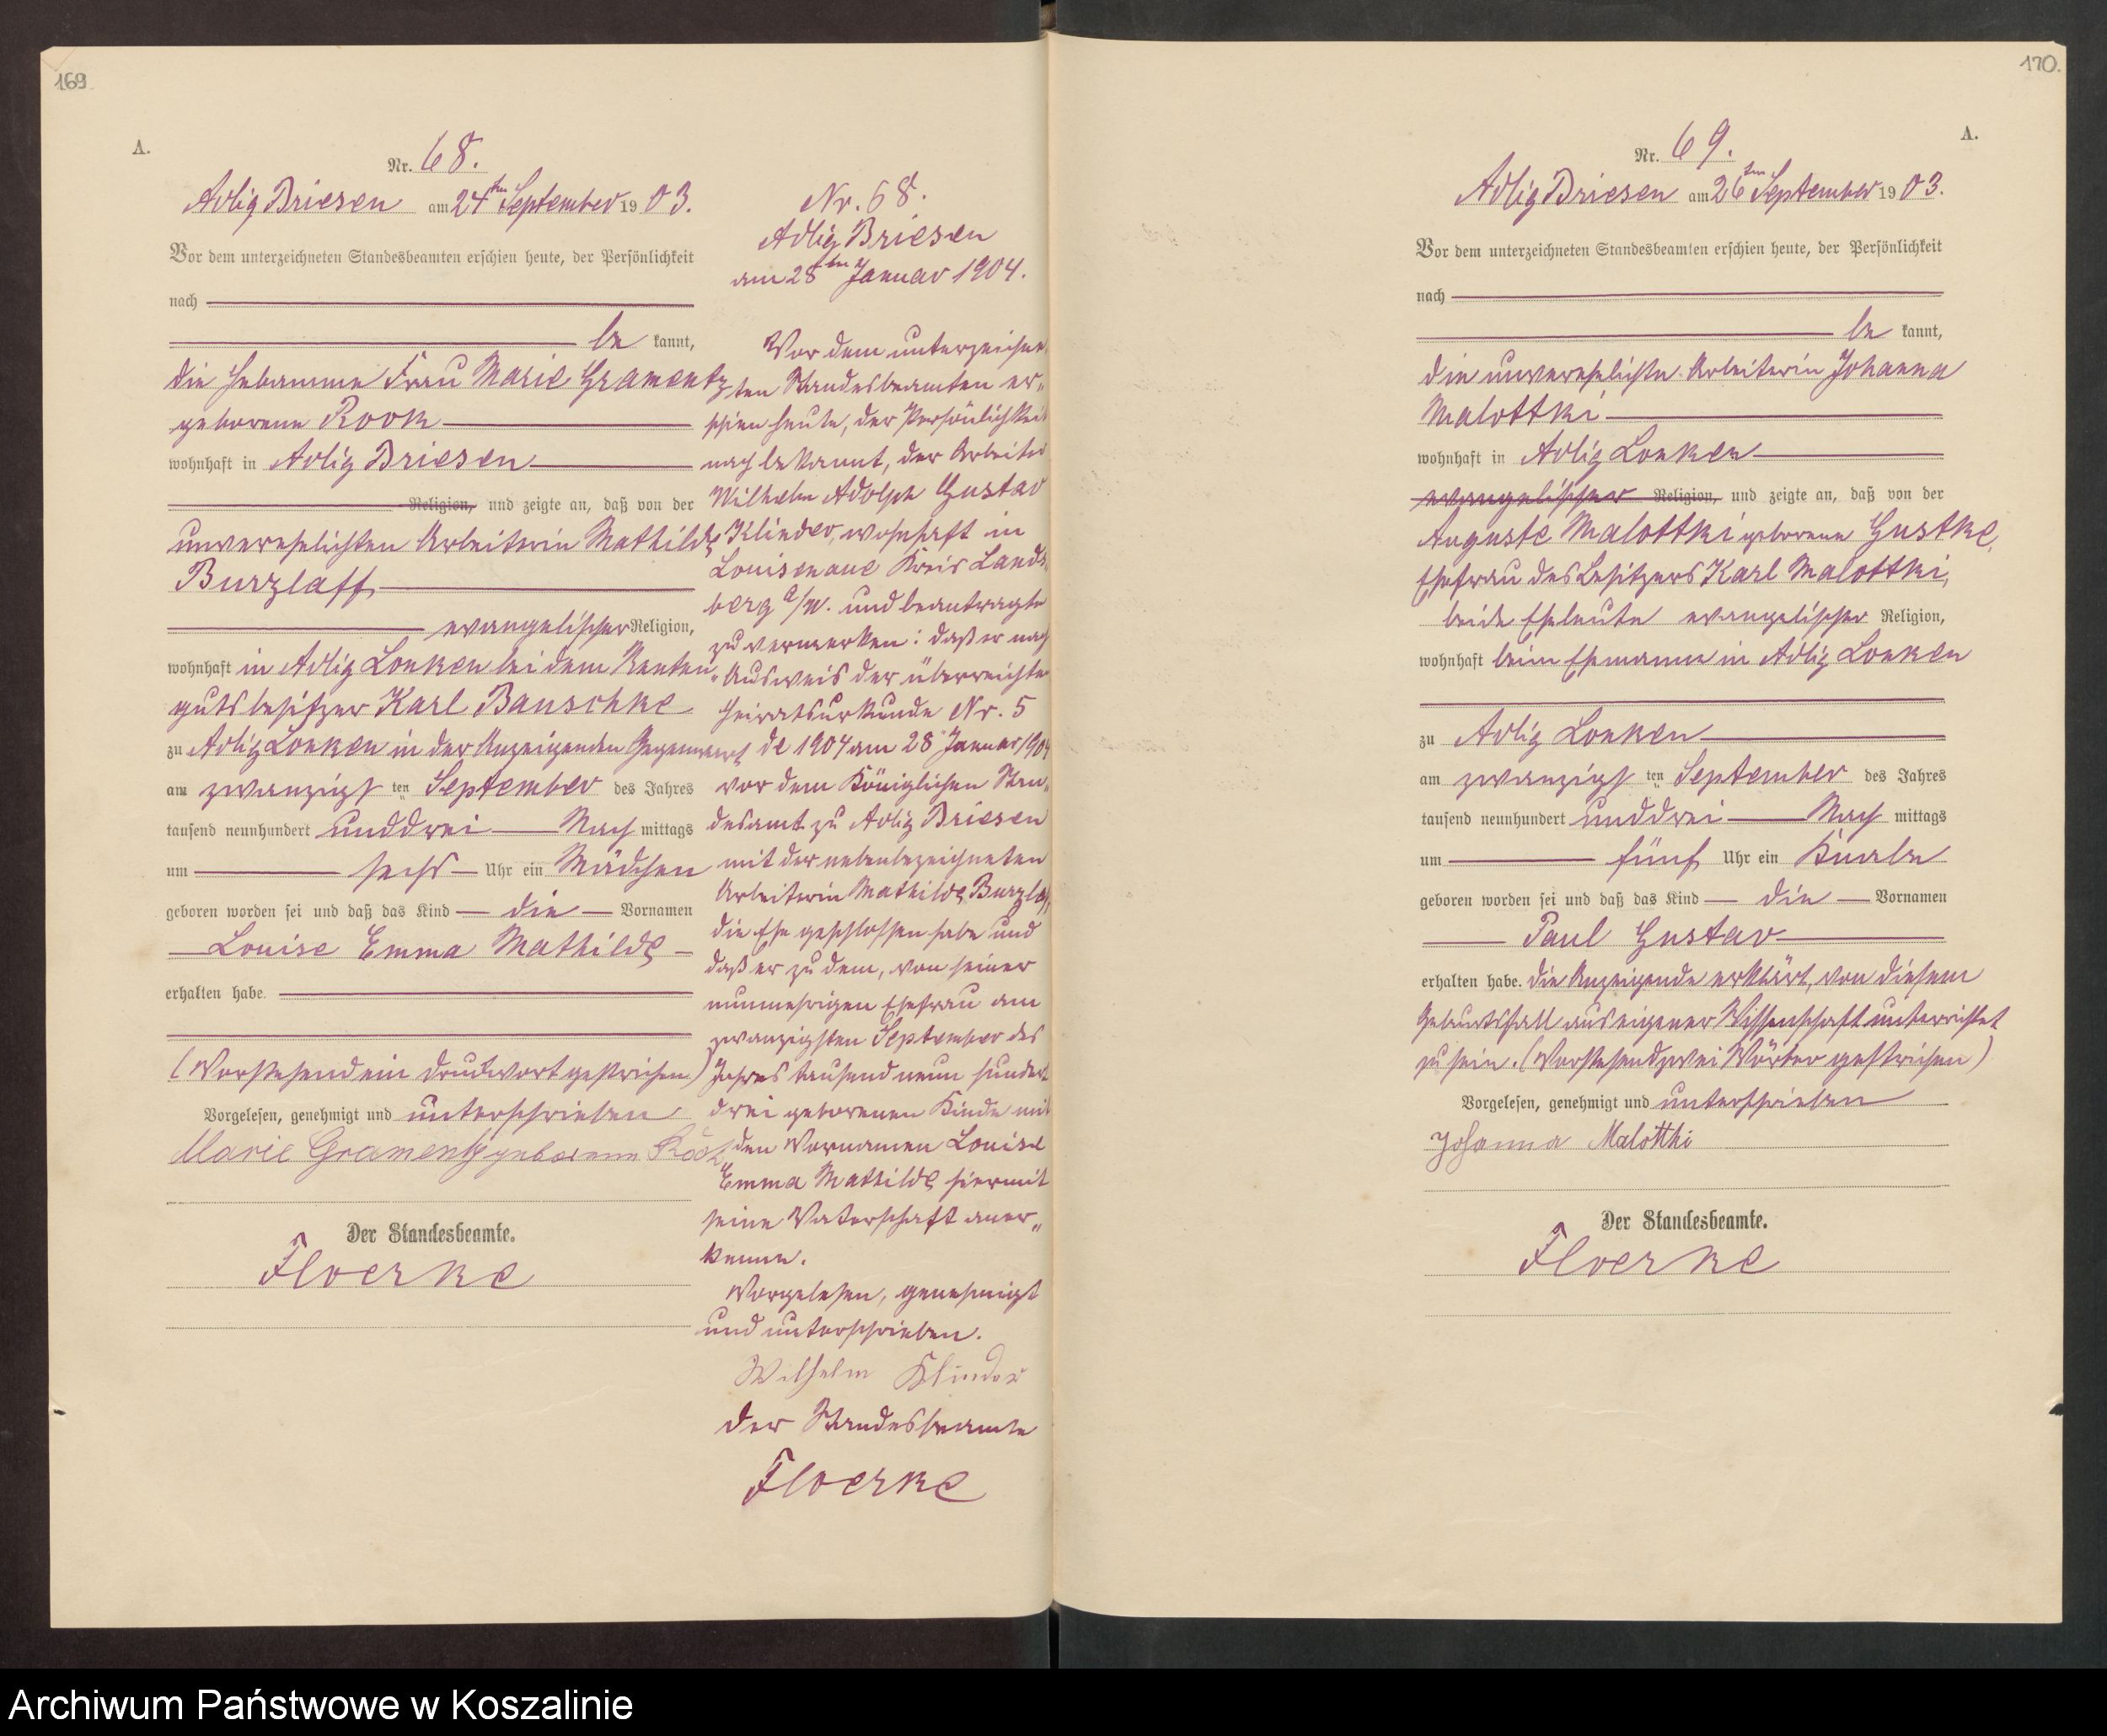 169.
A.
Nr. 68.
Adlig Briesen am 24ten September 1903.
Vor dem unterzeichneten Standesbeamten erschien heute, der Persönlichkeit
nach
be kannt,
die Hebamme Frau Marie Gramentz
geborene Rook
wohnhaft in Adlig Briesen
Religion, und zeigte an, daß von der
unverehelichten Arbeiterin Mathilde
Burzlaff
evangelischer Religion,
wohnhaft in Adlig Lonken bei dem Renten„
gutsbesitzer Karl Bauschke
zu Adlig Lonken in der Anzeigenden Gegenwart
am zwanzigs ten September des Jahres
tausend neunhundert und drei Nach mittags
um sechs Uhr ein Mädchen
geboren worden sei und daß das Kind die Vornamen
Louise Emma Mathilde
erhalten habe.
(Vorstehend ein Druckwort gestrichen)
Vorgelesen, genehmigt und unterschrieben
Marie Gramentz geborene Rook
Der Standesbeamte.
Floerke
Nr. 68.
Adlig Briesen
am 28ten Januar 1904.
Vor dem unterzeichne„
ten Standesbeamten er„
schien heute, der Persönlichkeit
nach bekannt, der Arbeiter
Wilhelm Adolph Gustav
Klinder, wohnhaft in
Louisenaue Kreis Lands„
berg a/W. und beantragte
zu vermerken: daß er nach
Ausweis der überreichten
Heiratsurkunde Nr. 5
de 1904 am 28 Januar 1904
vor dem Königlichen Stan„
desamt zu Adlig Briesen
mit der nebenbezeichneten
Arbeiterin Mathilde Burzlaff
die Ehe geschlossen habe und
daß er zu dem, von seiner
nunmehrigen Ehefrau am
zwanzigsten September des
Jahres tausend neun hundert
drei geborenen Kinde mit
den Vornamen Louise
Emma Mathilde hiermit
seine Vaterschaft aner„
kenne.
Vorgelesen, genehmigt
und unterschrieben.
Wilhelm Klinder
Der Standesbeamte
Floerke
170.
A.
Nr. 69.
Adlig Briesen am 26ten September 1903.
Vor dem unterzeichneten Standesbeamten erschien heute, der Persönlichkeit
nach
be kannt,
die unverehelichte Arbeiterin Johanna
Malottki
wohnhaft in Adlig Lonken
evangelischer Religion, und zeigte an, daß von der
Auguste Malottki geborene Gustke,
Ehefrau des Besitzers Karl Malottki,
beide Eheleute evangelischer Religion,
wohnhaft beim Ehemanne in Adlig Lonken
zu Adlig Lonken
am zwanzigs ten September des Jahres
tausend neunhundert und drei Nach mittags
um fünf Uhr ein Knabe
geboren worden sei und daß das Kind die Vornamen
Paul Gustav
erhalten habe. Die Anzeigende erklärt, von diesem
Geburtsfall aus eigener Wissenschaft unterrichtet
zu sein. (Vorstehend zwei Wörter gestrichen)
Vorgelesen, genehmigt und unterschrieben
Johanna Malottki
Der Standesbeamte.
Floerke
Archiwum Państwowe w Koszalinie